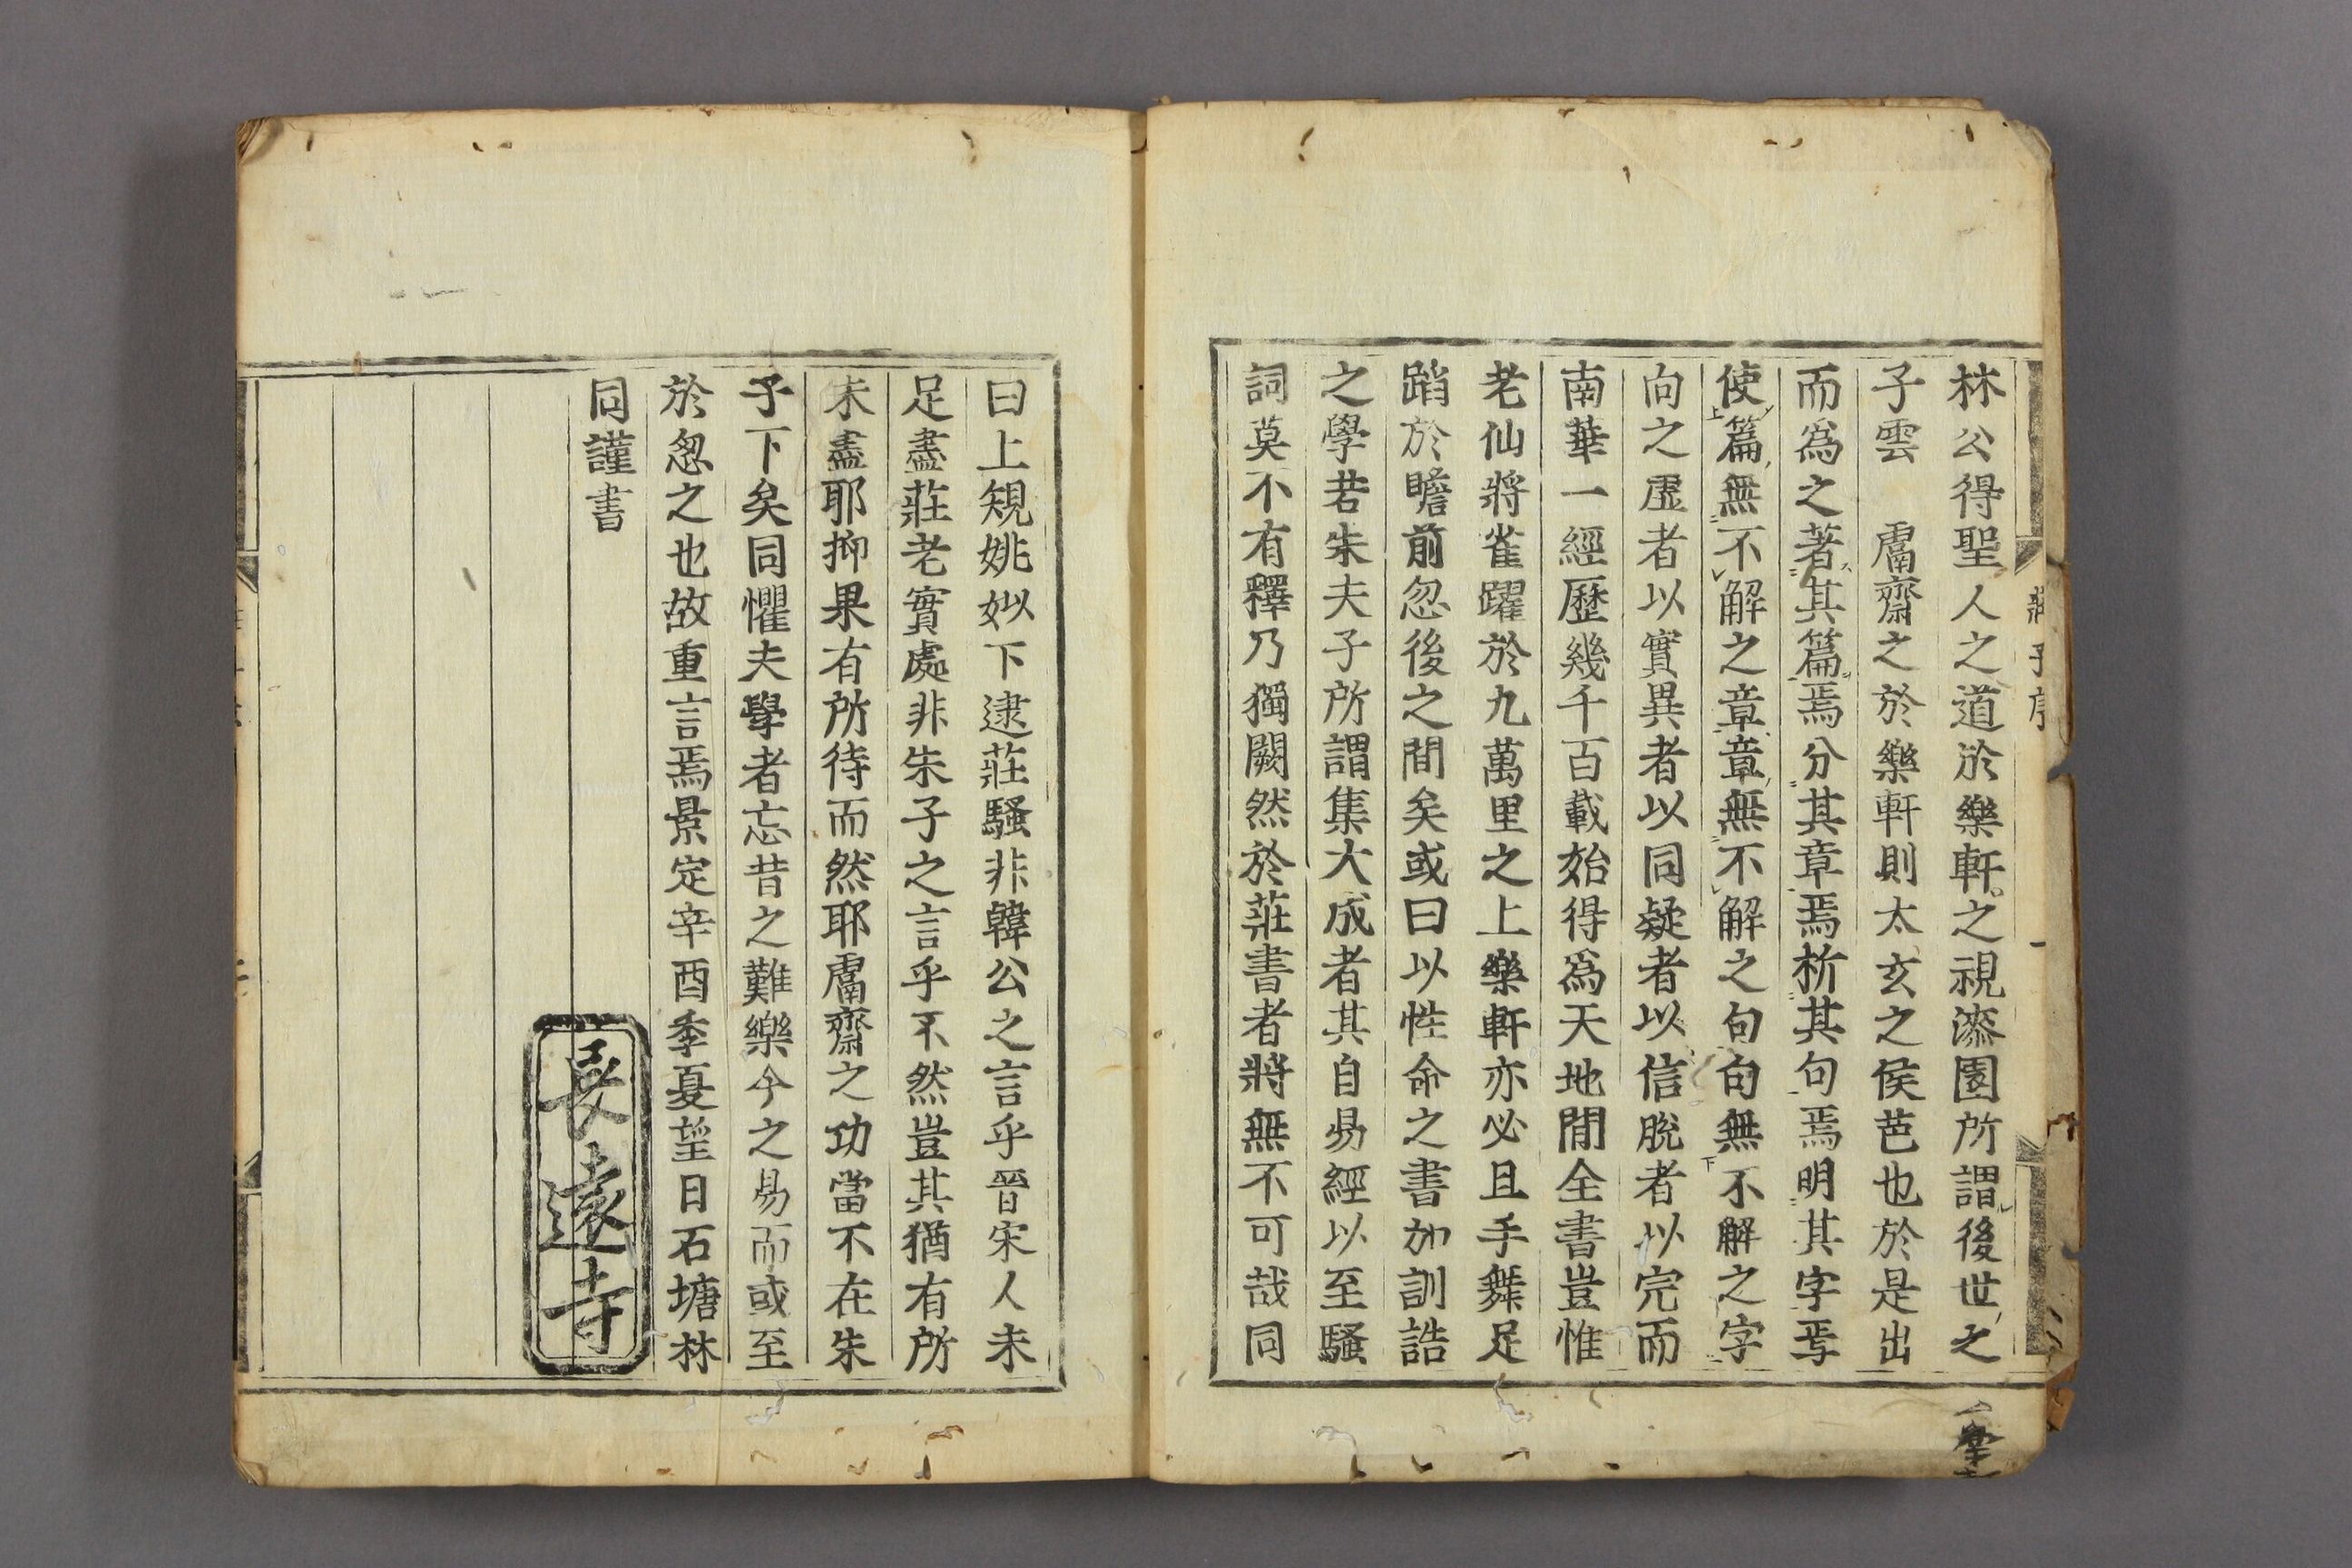 林公得聖人之道於樂軒之視漆園所謂後世之
子雲　鬳齋之於樂軒則太玄之侯芭也於是出
而爲之著其篇焉分其章焉析其句焉明其字焉
使篇無不解之章章無不解之句句無不解之字
向之虛者以實異者以同疑者以信脫者以完而
南華一經歷幾千百載始得爲天地間全書豈惟
老仙將雀躍於九萬里之上樂軒亦必且手舞足
蹈於瞻前忽後之間矣或曰以性命之書加訓誥
之學若朱夫子所謂集大成者其自易經以至騷
詞莫不有釋乃獨闕然於莊書者將無不可哉同
曰上規姚姒下逮莊騷非韓公之言乎晉宋人未
足盡莊老實處非朱子之言乎不然豈其猶有所
未盡耶抑果有所待而然耶鬳齋之功當不在朱
子下矣同懼夫學者忘昔之難樂今之易而或至
於忽之也故重言焉景定辛酉季夏望日石塘林
同謹書
長遠寺